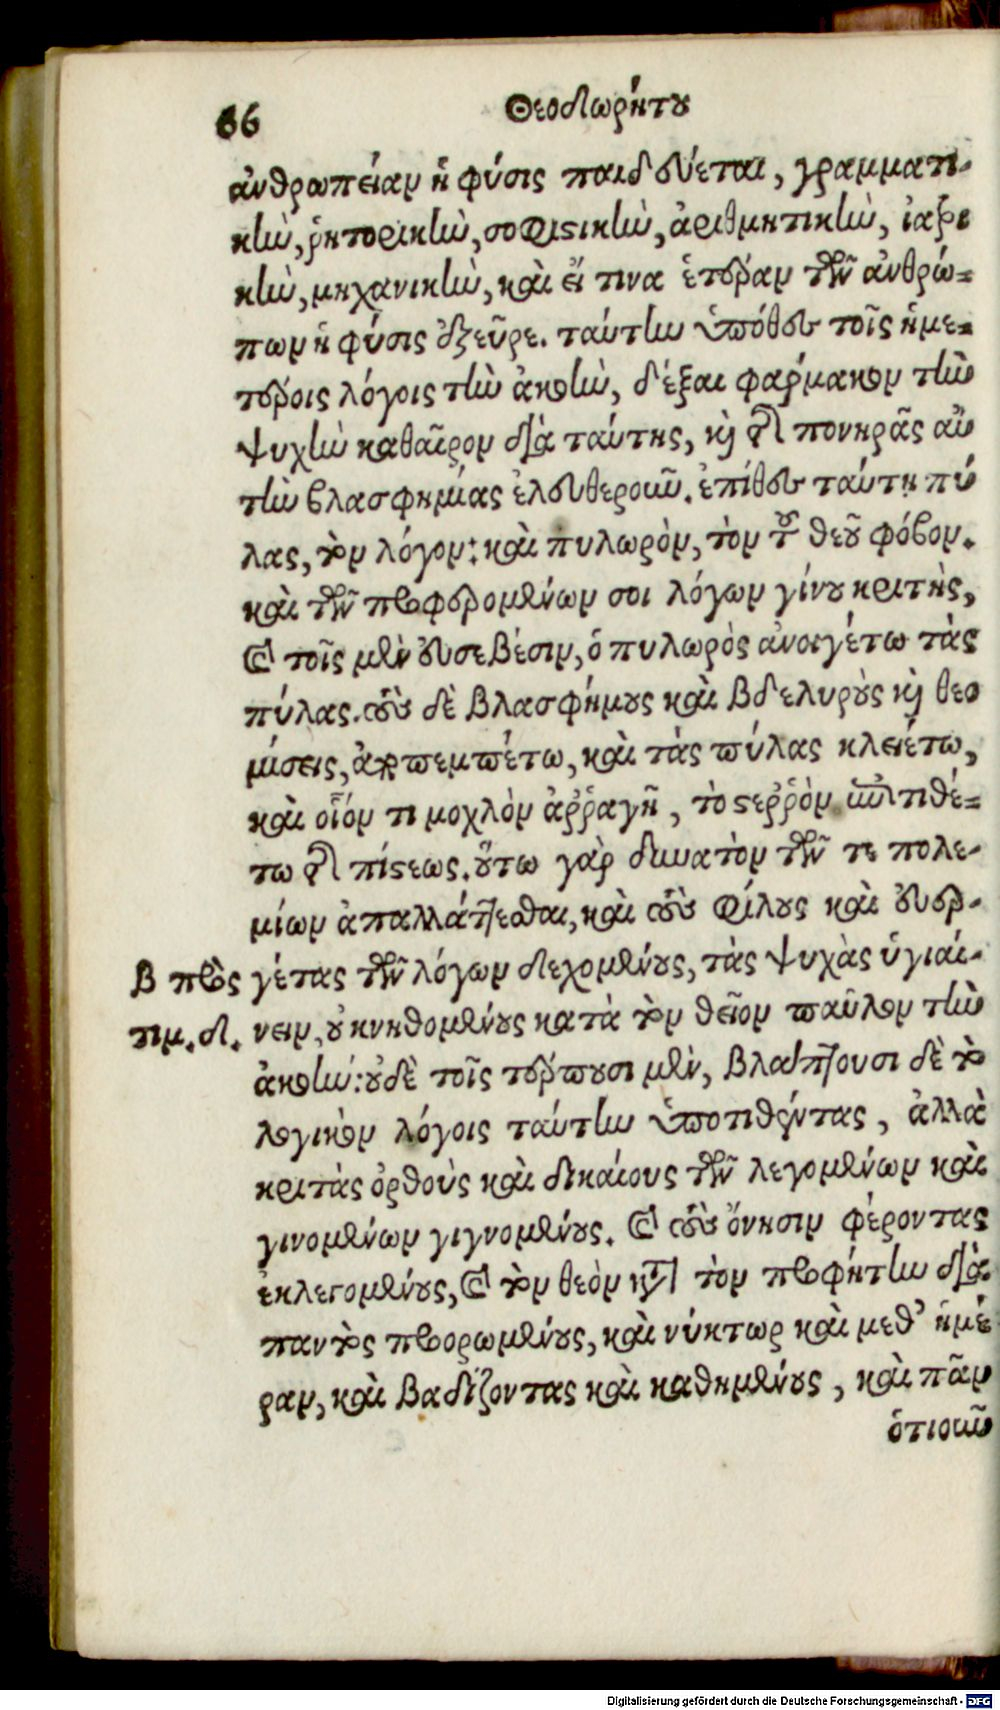 66
Θεοδωρήτου
ἀνθρωπείαν ἡ φύσις παιδεύεται, γραμματι-
κὴν, ῥητορικὴν, σοφιστικὴν, ἀριθμητικὴν, ἰατρι
κὴν, μηχανικὴν, καὶ εἴ τινα ἑτέραν τῶν ἀνθρώ-
πων ἡ φύσις ἐξεῦρε. ταύτην ὑπόθες τοῖς ἡμε-
τέροις λόγοις τὴν ἀκοὴν, δέξαι φάρμακον τὴν
ψυχὴν καθαῖρον διὰ ταύτης, καὶ τῆς πονηρᾶς αὐ
τὴν βλασφημίας ἐλευθεροῦν. ἐπίθες ταύτῃ πύ
λας, τὸν λόγον: καὶ πυλωρὸν, τὸν τοῦ θεοῦ φόβον.
καὶ τῶν προσφερομένων σοι λόγων γίνου κριτὴς,
καὶ τοῖς μὲν εὐσεβέσιν, ὁ πυλωρὸς ἀνοιγέτω τὰς
πύλας. τοὺς δὲ βλασφήμους καὶ βδελυροὺς καὶ θεο
μίσεις, ἀποπεμπέτω, καὶ τὰς πύλας κλειέτω,
καὶ οἷόν τι μοχλὸν ἀῤῥαγῆ, τὸ στεῤῥὸν ἐπιτιθέ-
τω τῆς πίστεως. οὕτω γὰρ δυνατὸν τῶν τε πολε-
μίων ἀπαλλάττεσθαι, καὶ τοὺς φίλους καὶ εὐερ-
γέτας τῶν λόγων δεχομένους, τὰς ψυχὰς ὑγιαί-
β πρὸς
τιμ. δ.
νειν, οὐ κνηθομένους κατὰ τὸν θεῖον παῦλον τὴν
ἀκοὴν: οὐδὲ τοῖς τέρπουσι μὲν, βλάπτουσι δὲ τὸ
λογικὸν λόγοις ταύτην ὑποτιθέντας, ἀλλὰ
κριτὰς ὀρθοὺς καὶ δικαίους τῶν λεγομένων καὶ
γινομένων γιγνομένους. καὶ τοὺς ὄνησιν φέροντας
ἐκλεγομένους, καὶ τὸν θεὸν κατὰ τὸν προφήτην διὰ
παντὸς προορωμένους, καὶ νύκτωρ καὶ μεθ' ἡμέ
ραν, καὶ βαδίζοντας καὶ καθημένους, καὶ πᾶν
ὁτιοῦν
Digitalisierung gefördert durch die Deutsche Forschungsgemeinschaft - DFG